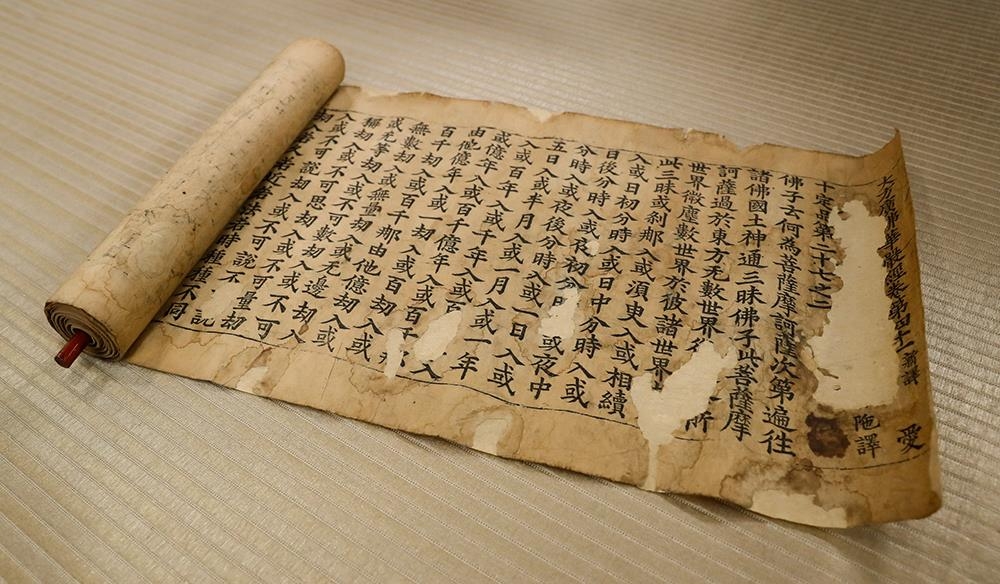 大方廣佛華嚴經卷第四十一 新譯 愛
陁譯
十定品第二十七之二
佛子云何為菩薩摩訶薩次第遍往
諸佛國土神通三昧佛子此菩薩摩
訶薩過於東方无數世界 所
世界微塵數世界於彼諸世界
此三昧或剎那入或須臾入或相續
入或日初分時入或日中分時入或
日後分時入或夜初分 或夜中
分時入或夜後分時入或一日入或
五日入或半月入或一月入或一年
入或百年入或千年入或百
或億年入或百千億年入或百千
由他億年入或一劫入或百劫入或
百千劫入或百千那由他億劫入或
無數劫入或無量劫入或无邊劫入
或无等劫入或不可數劫入或不可
稱劫入或不可思劫入或不可量劫
入或不可說劫入或不可說不 說
劫入 時種種不同